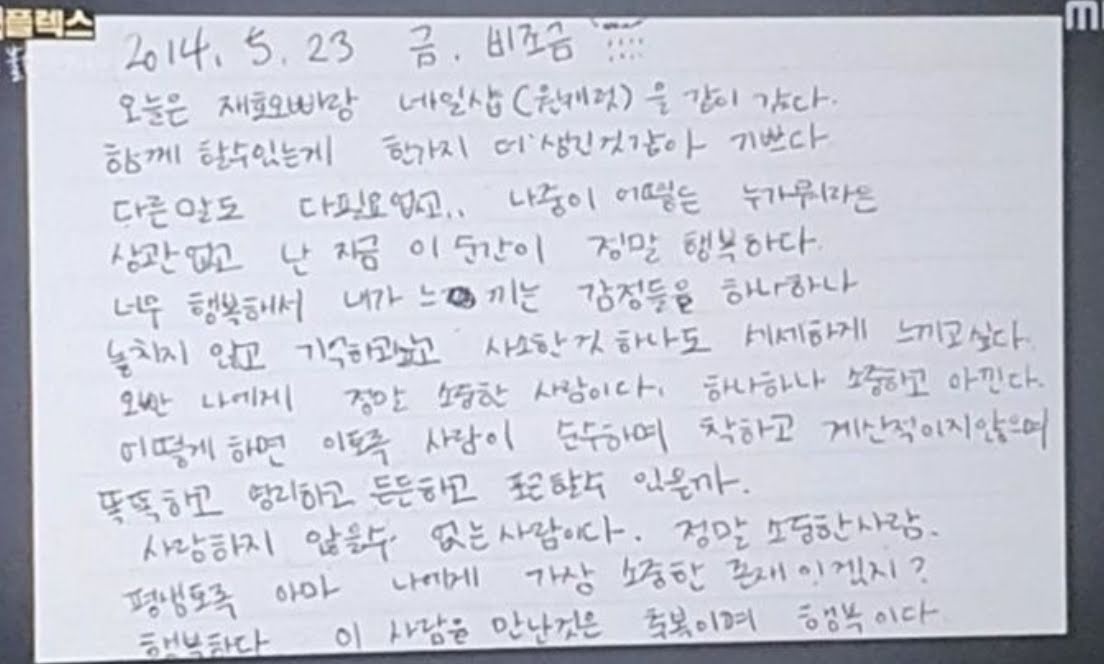 플렉스
2014. 5. 23 금. 비조금
오늘은 재호오빠랑 네일샵(원캐럿)을 같이 갔다.
함께 할수있는게 한가지 더 생긴것같아 기쁘다
다른말도 다필요없고.. 나중이 어떻든 누가뭐라든
상관없고 난 지금 이 순간이 정말 행복하다.
너무 행복해서 내가 느끼는 감정들을 하나하나
놓치지 않고 기억하고싶고 사소한것 하나도 세세하게 느끼고싶다.
오빤 나에게 정말 소중한 사람이다. 하나하나 소중하고 아낀다.
어떻게 하면 이토록 사람이 순수하며 착하고 계산적이지않으며
똑똑하고 영리하고 든든하고 포근할수 있을까.
사랑하지 않을수 없는사람이다. 정말 소중한사람.
평생토록 아마 나에게 가장 소중한 존재이겠지?
행복하다 이 사람을 만난것은 축복이며 행복이다